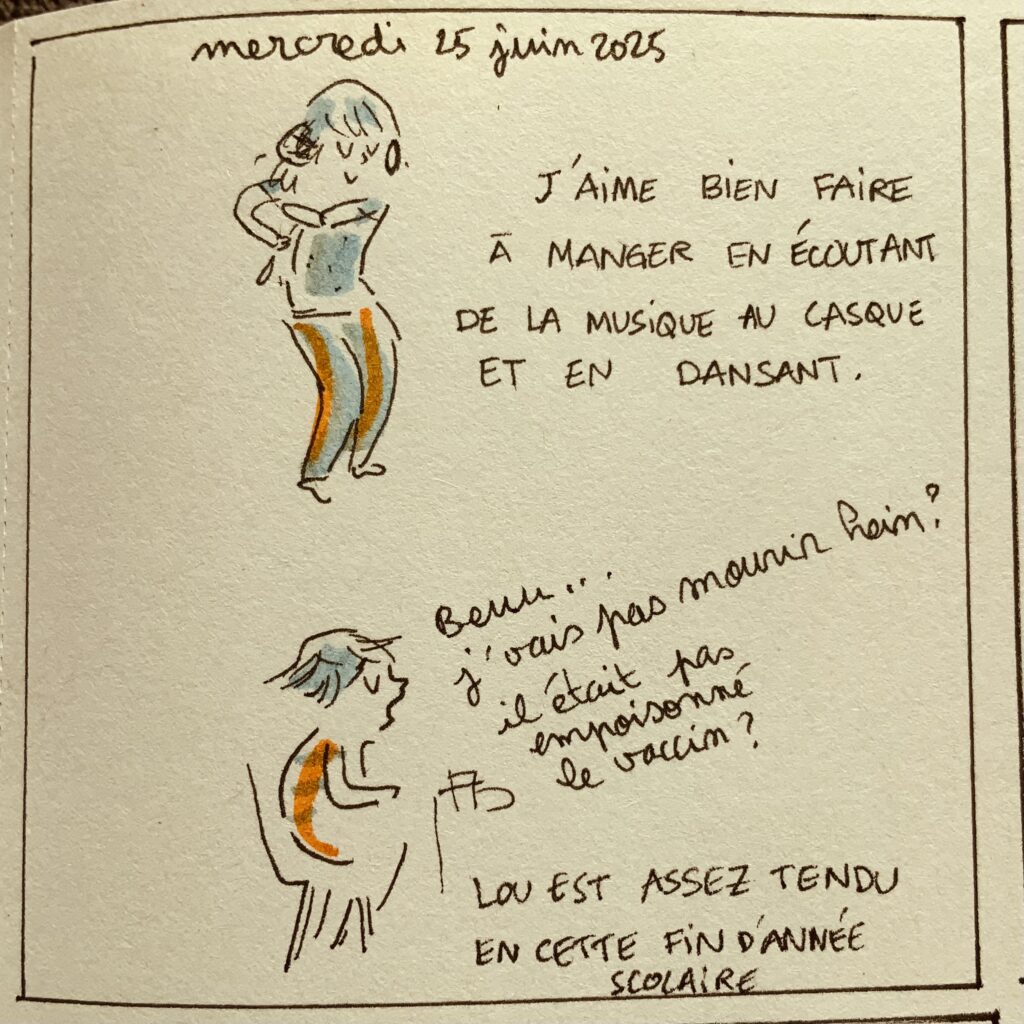 mercredi 25 juin 2025
J'AIME BIEN FAIRE
À MANGER EN ÉCOUTANT
DE LA MUSIQUE AU CASQUE
ET EN DANSANT.
Beuu...
j'vais pas mourir hein?
il était pas
empoisonné
le vaccin?
LOU EST ASSEZ TENDU
EN CETTE FIN D'ANNÉE
SCOLAIRE